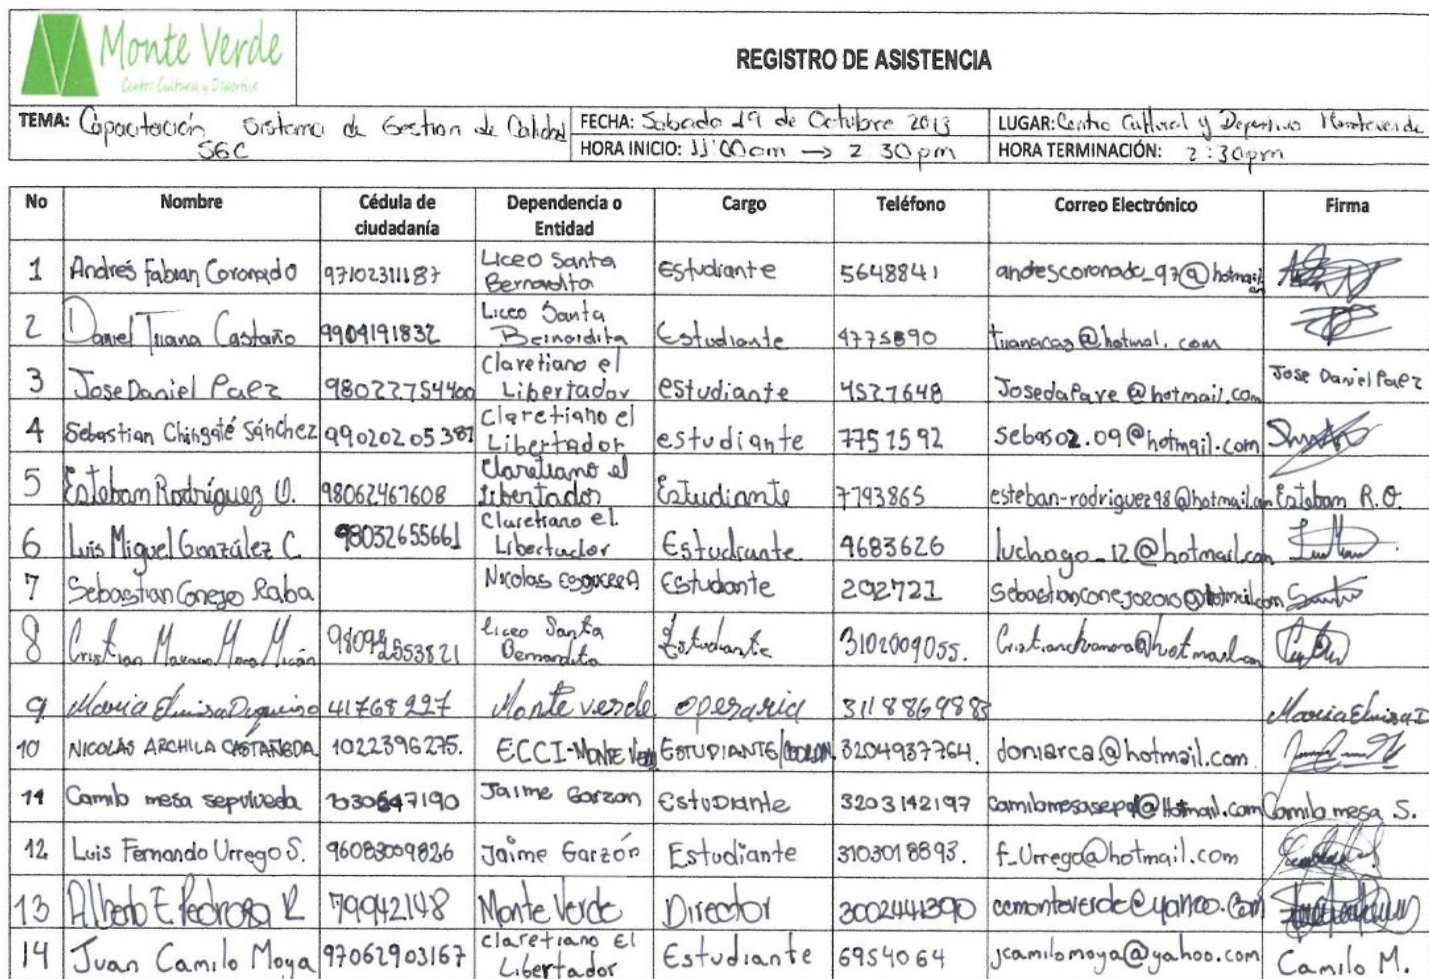 Monte Verde
Centro Cultural y Deportivo
REGISTRO DE ASISTENCIA
TEMA: Capacitación Sistema de Gestion de Calidad
SGC
FECHA: Sabado 19 de Octubre 2013
LUGAR: Centro Cultural y Deportivo Monteverde
HORA INICIO: 11:00am → 2 30 pm
HORA TERMINACIÓN: 2:30pm
No Nombre Cédula de ciudadanía Dependencia o Entidad Cargo Teléfono Correo Electrónico Firma
1 Andrés Fabian Coronado 97102311187 Liceo Santa Bernardita Estudiante 5648841 andrescoronado_97@hotmail.
2 Daniel Triana Castaño 9904191832 Liceo Santa Bernardita Estudiante 4775890 @hotmail.com
3 Jose Daniel Paez 98022754400 Claretiano el Libertador estudiante 4527648 Josedapave@hotmail.com Jose Daniel Paez
4 Sebastian Chingaté Sánchez 99020205387 Claretiano el Libertador estudiante 7751592 sebas02.09@hotmail.com
5 Esteban Rodríguez O. 98062467608 Claretiano el Libertador Estudiante 7793865 esteban-rodriguez98@hotmail.com Esteban R.O.
6 Luis Miguel González C. 98032655661 Claretiano el Libertador Estudiante 4683626 luchogo_12@hotmail.com
7 Sebastian Conejo Raba Nicolas EsguerrA Estudante 2092721 Sebastianconejo2010@hotmail.com
8 Cristian Mora Micán Liceo Santa Bernardita Estudiante 3102009055. @hotmail.com
9 Maria 41768227 Monte verde operaria 3118869883 Maria
10 NICOLÁS ARCHILA CASTAÑEDA 1022396275. ECCI-MONTE VERDE ESTUDIANTE/ 3204937764. doniarca@hotmail.com
11 Camilo mesa sepulveda 1030647190 Jaime Garzon EstuDiante 3203142197 @Hotmail.com Camilo mesa S.
12 Luis Fernando Urrego S. 96083009826 Jaime Garzón Estudiante 3103018893. f_Urrego@hotmail.com
13 Alberto E Pedroza R 79942148 Monte Verde Director 3002441390 ccmonteverde@yahoo.com
14 Juan Camilo Moya 97062903167 claretiano El Libertador Estudiante 6954064 jcamilomoya@yahoo.com Camilo M.